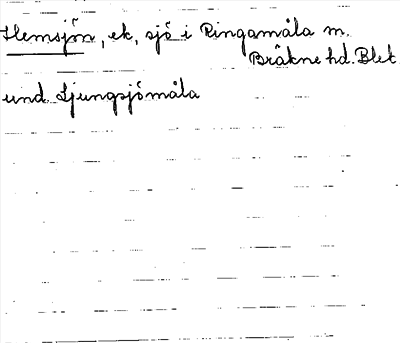 Hemsjön, ek, sjö i Ringamåla m.
Bräkne hd. Blek.
und Ljungsjömåla